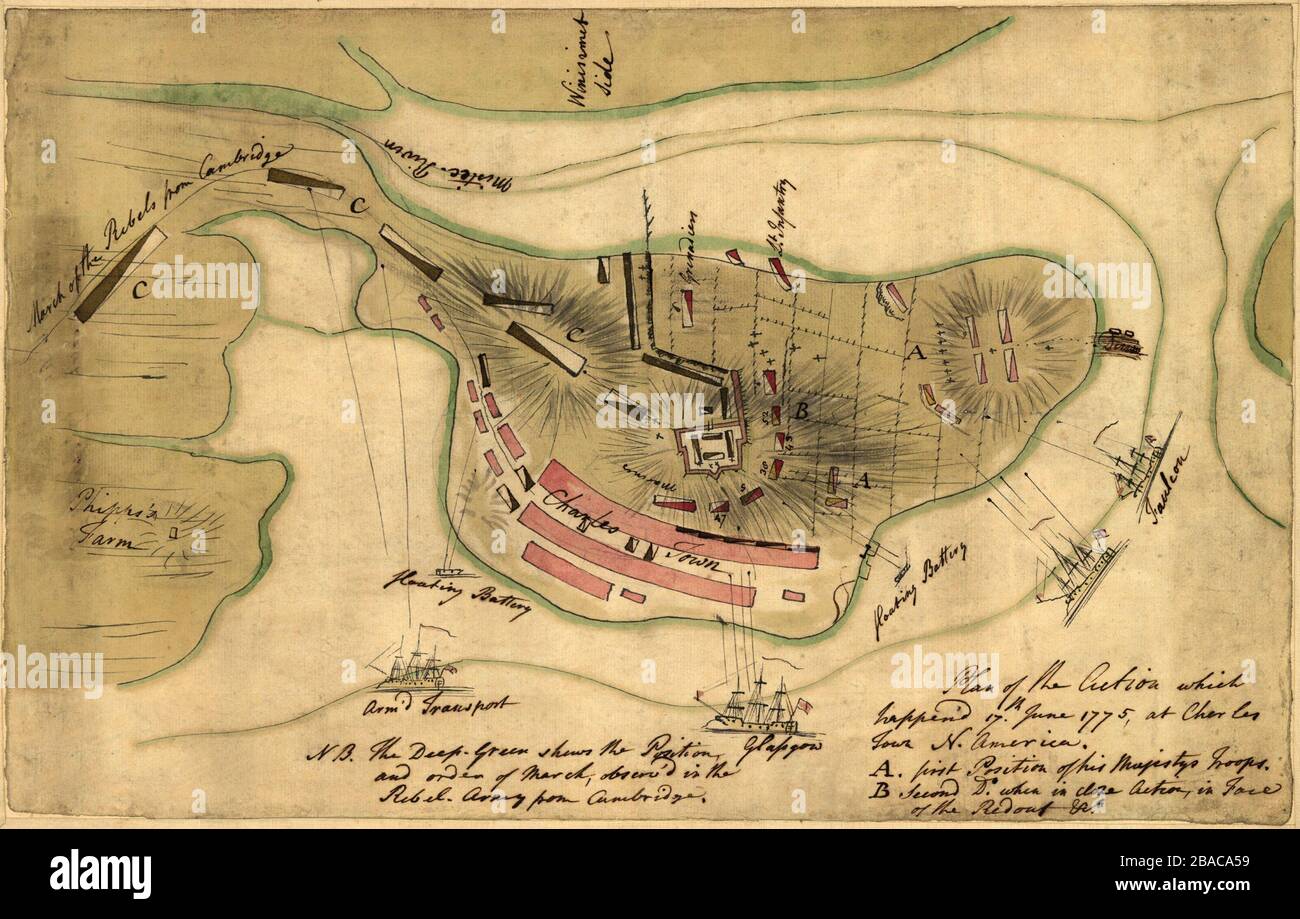 Winisimet
side
March of the Rebels from Cambridge
Mistic River
C
C
C
Grenadiers
Lt. Infantry
A
B
52
43
38
5
47
A.
Charles Town
Phipps's
Farm
floating Battery
floating Battery
Faulcon
Arm'd Transport
Glasgow
N B. The Deep-Green shews the Position,
and order of March, observ'd in the
Rebel-Army from Cambridge.
Plan of the Action which
happen'd 17.th June 1775, at Charles
Town N. America.
A. first Position of his Majestys Troops.
B Second Do. when in close Action, in Face
of the Redout &c.
alamy
Image ID: 2BACA59
www.alamy.com